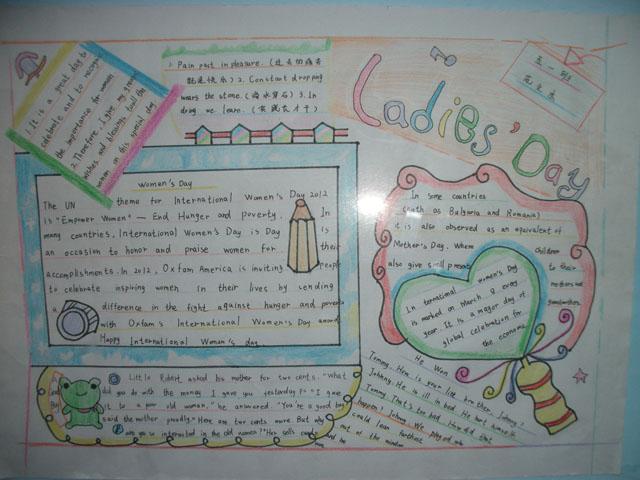 Ladies' Day
五一班
1. It is a great day to
celebrate and to recognize
the importance for women
2. Therefore, I give my greatest
wishes and blessings to all the
women on this special day
1. Pain past in pleasure. (过去的痛苦
就是快乐) 2. Constant dropping
wears the stone. (滴水穿石) 3. In
drog we learn. (实践长才干)
Women's Day
The UN theme for International Women's Day 2012
is "Empower Women" — End Hunger and poverty. In
many countries, International Women's Day is Day is
an occasion to honor and praise women for their
accomplishments. In 2012, Oxfam America is inviting people
to celebrate inspiring women in their lives by sending
a difference in the fight against hunger and poverty
with Oxfam's International Women's Day award
Happy International Women's day
In some countries
(such as Bulgaria and Romania)
it is also observed as an equivalent of
Mother's Day. Where children
also give small presents to their
mothers and
grandmothers.
International women's Day
is marked on March 8 every
year. It is a major day of
global celebration for
the economic
Little Robert asked his mother for two cents. "What
did you do with the money I gave you yesterday?" "I gave
it to a poor old woman," he answered. "You're a good boy"
said the mother proudly. "Here are two cents more. But why
are you so interested in the old woman?" "He sells candy
He Won
Tommy: How is your little brother, Johnny?
Johnny: He is ill in bed. He hurt himself
Tommy: That's too bad. How did that
happen? Johnny: We played who
could lean furthest
out of the window
and he